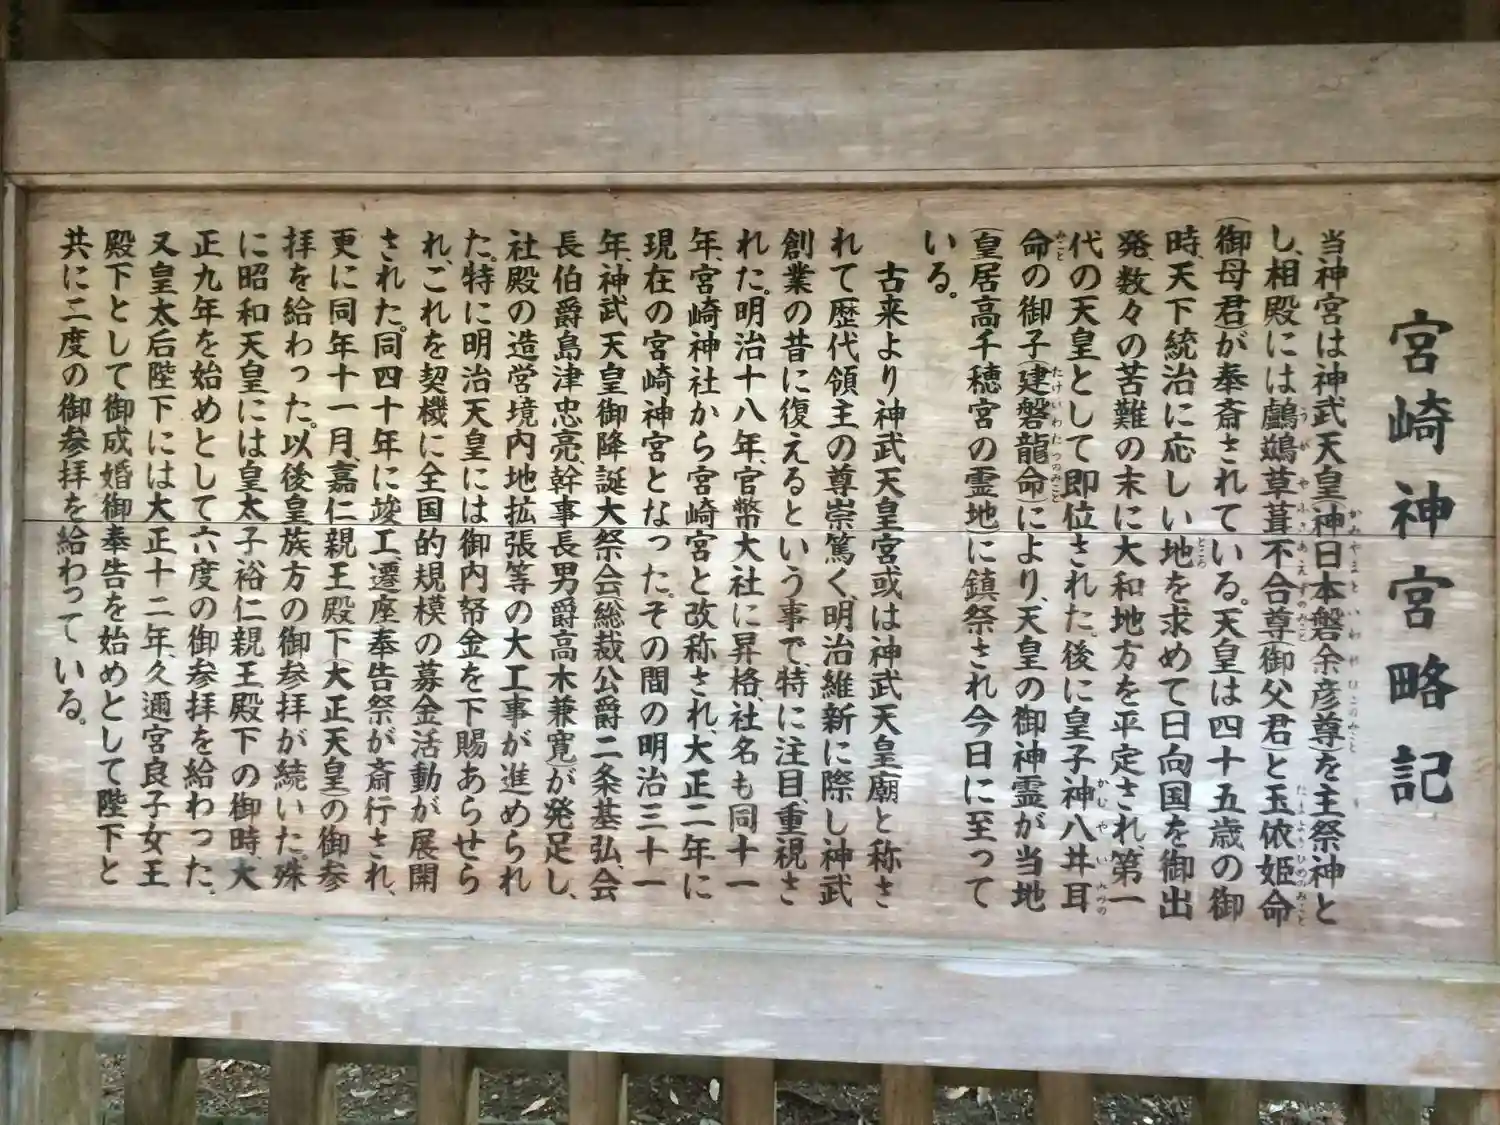 宮崎神宮略記
当神宮は神武天皇(神日本磐余彦尊)を主祭神と
し、相殿には鸕鷀草葺不合尊(御父君)と玉依姫命
(御母君)が奉斎されている。天皇は四十五歳の御
時、天下統治に応しい地を求めて日向国を御出
発、数々の苦難の末に大和地方を平定され、第一
代の天皇として即位された。後に皇子神八井耳
命の御子(建磐龍命)により、天皇の御神霊が当地
(皇居高千穂宮の霊地に鎮祭され今日に至って
いる。
古来より神武天皇宮或は神武天皇廟と称さ
れて歴代領主の尊崇篤く、明治維新に際し神武
創業の昔に復えるという事で、特に注目、重視さ
れた。明治十八年、官幣大社に昇格、社名も同十一
年、宮崎神社から宮崎宮と改称され、大正二年に
現在の宮崎神宮となった。その間の明治三十一
年、神武天皇御降誕大祭会(総裁公爵二条基弘、会
長伯爵島津忠亮、幹事長男爵高木兼寛)が発足し、
社殿の造営、境内地拡張等の大工事が進められ
た。特に明治天皇には御内帑金を下賜あらせら
れ、これを契機に全国的規模の募金活動が展開
された。同四十年に竣工、遷座奉告祭が斎行され、
更に同年十一月、嘉仁親王殿下(大正天皇)の御参
拝を給わった。以後皇族方の御参拝が続いた。殊
に昭和天皇には皇太子裕仁親王殿下の御時、大
正九年を始めとして六度の御参拝を給わった。
又皇太后陛下には大正十二年、久邇宮良子女王
殿下として御成婚御奉告を始めとして陛下と
共に二度の御参拝を給わっている。